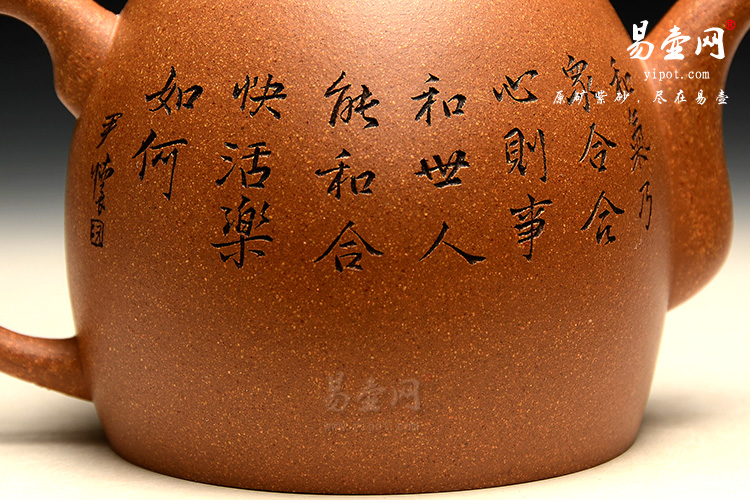 和氣乃
众合合
心則事
和世人
能和合
快活樂
如何
易壶网®
yipot.com
原矿紫砂，尽在易壶
易壶网
www.yipot.com